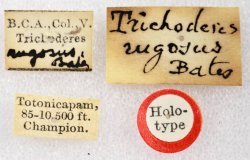 B.C.A., Col., V.
Trichoderes
rugosus,
Bates
Trichoderes
rugosus
Bates
Totonicapam,
85-10,500 ft.
Champion.
Holo-
type